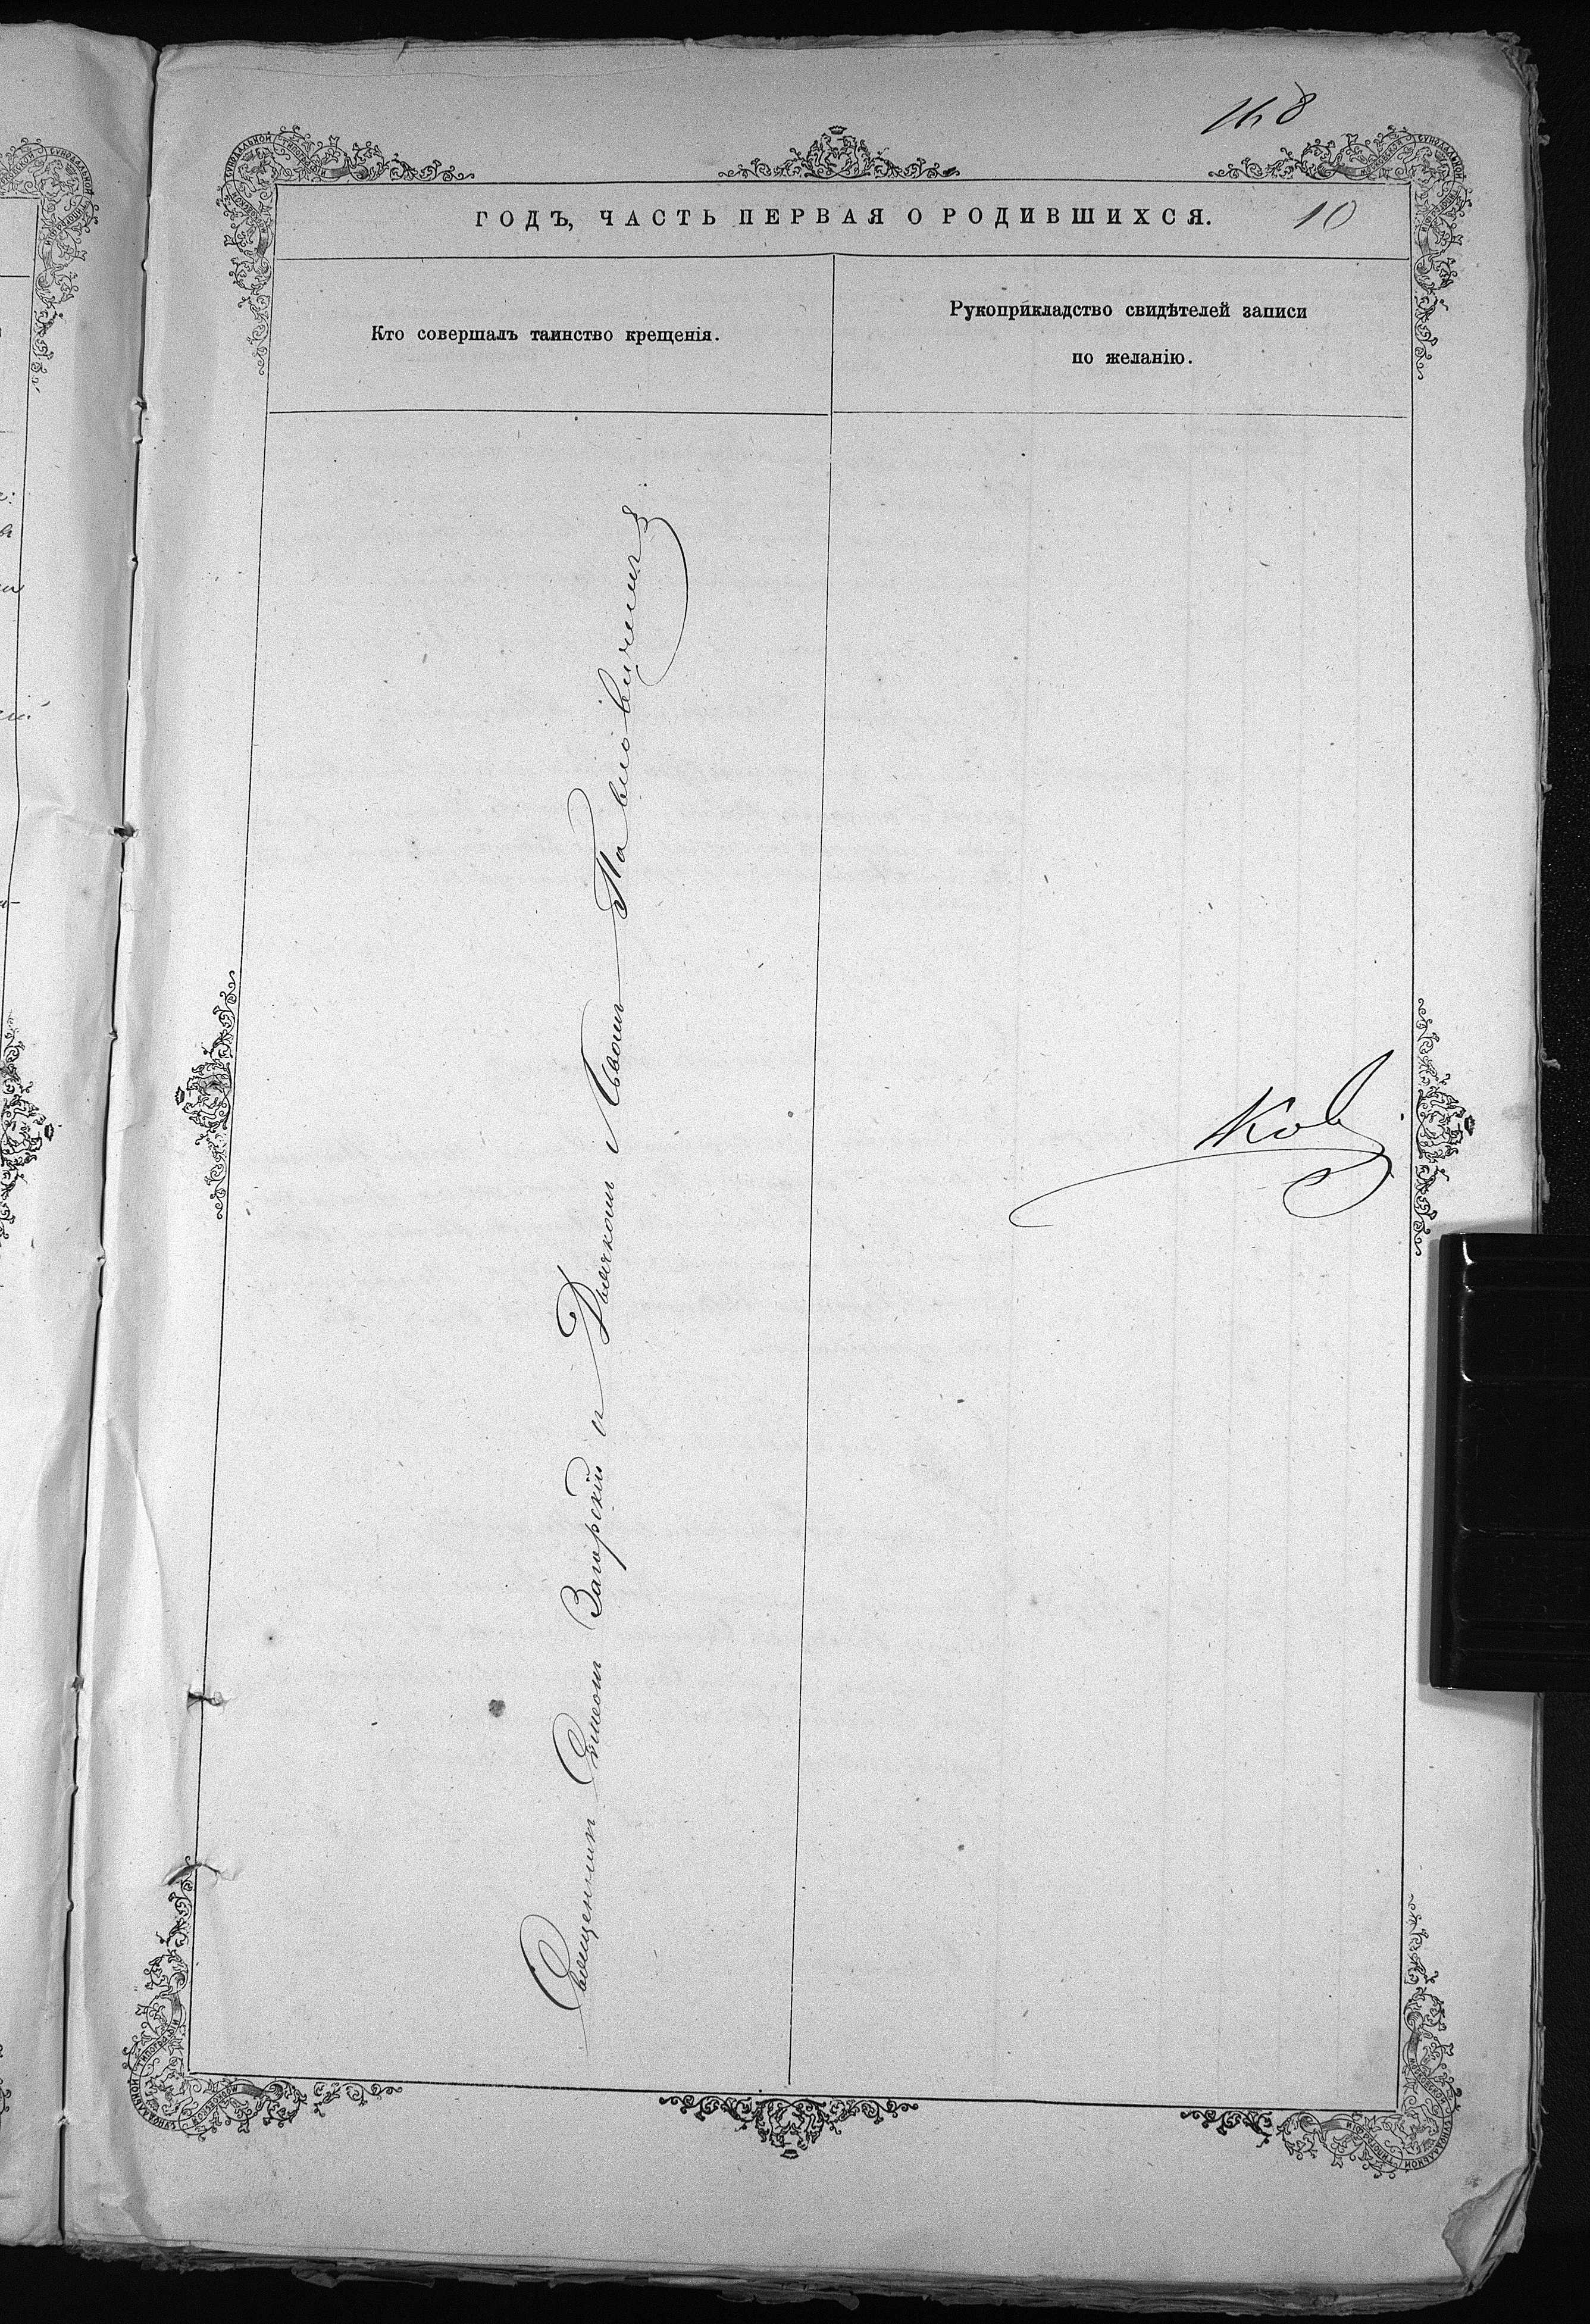 168
ГОДЪ, ЧАСТЬ ПЕРВАЯ О РОДИВШИХСЯ.
10
Кто совершалъ таинство крещенія.
Рукоприкладство свидѣтелей записи
по желанію.
Священник Симеон Загорскій и Дьячком Львом Павловичемъ
Ков